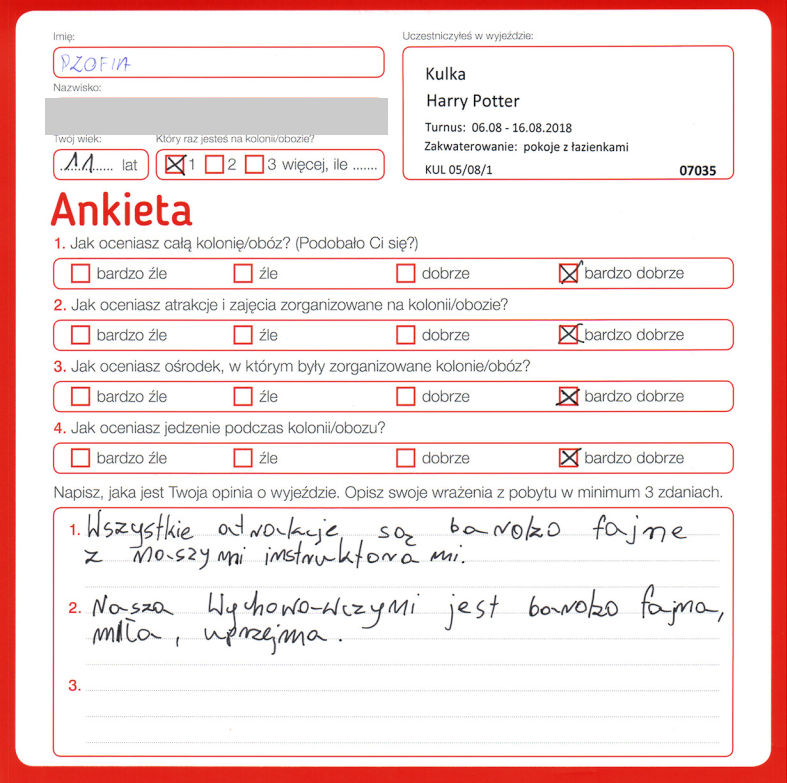 Imię:
PZOFIA
Uczestniczyłeś w wyjeździe:
Kulka
Harry Potter
Turnus: 06.08 - 16.08.2018
Zakwaterowanie: pokoje z łazienkami
KUL 05/08/1 07035
Nazwisko:
Twój wiek: Który raz jesteś na kolonii/obozie?
11 lat 1 2 3 więcej, ile .......
Ankieta
1. Jak oceniasz całą kolonię/obóz? (Podobało Ci się?)
bardzo źle źle dobrze bardzo dobrze
2. Jak oceniasz atrakcje i zajęcia zorganizowane na kolonii/obozie?
bardzo źle źle dobrze bardzo dobrze
3. Jak oceniasz ośrodek, w którym były zorganizowane kolonie/obóz?
bardzo źle źle dobrze bardzo dobrze
4. Jak oceniasz jedzenie podczas kolonii/obozu?
bardzo źle źle dobrze bardzo dobrze
Napisz, jaka jest Twoja opinia o wyjeździe. Opisz swoje wrażenia z pobytu w minimum 3 zdaniach.
1. Wszystkie atrakcje są bardzo fajne
z naszymi instruktorami.
2. Nasza Wychowawczymi jest bardzo fajna,
miła, uprzejma.
3.